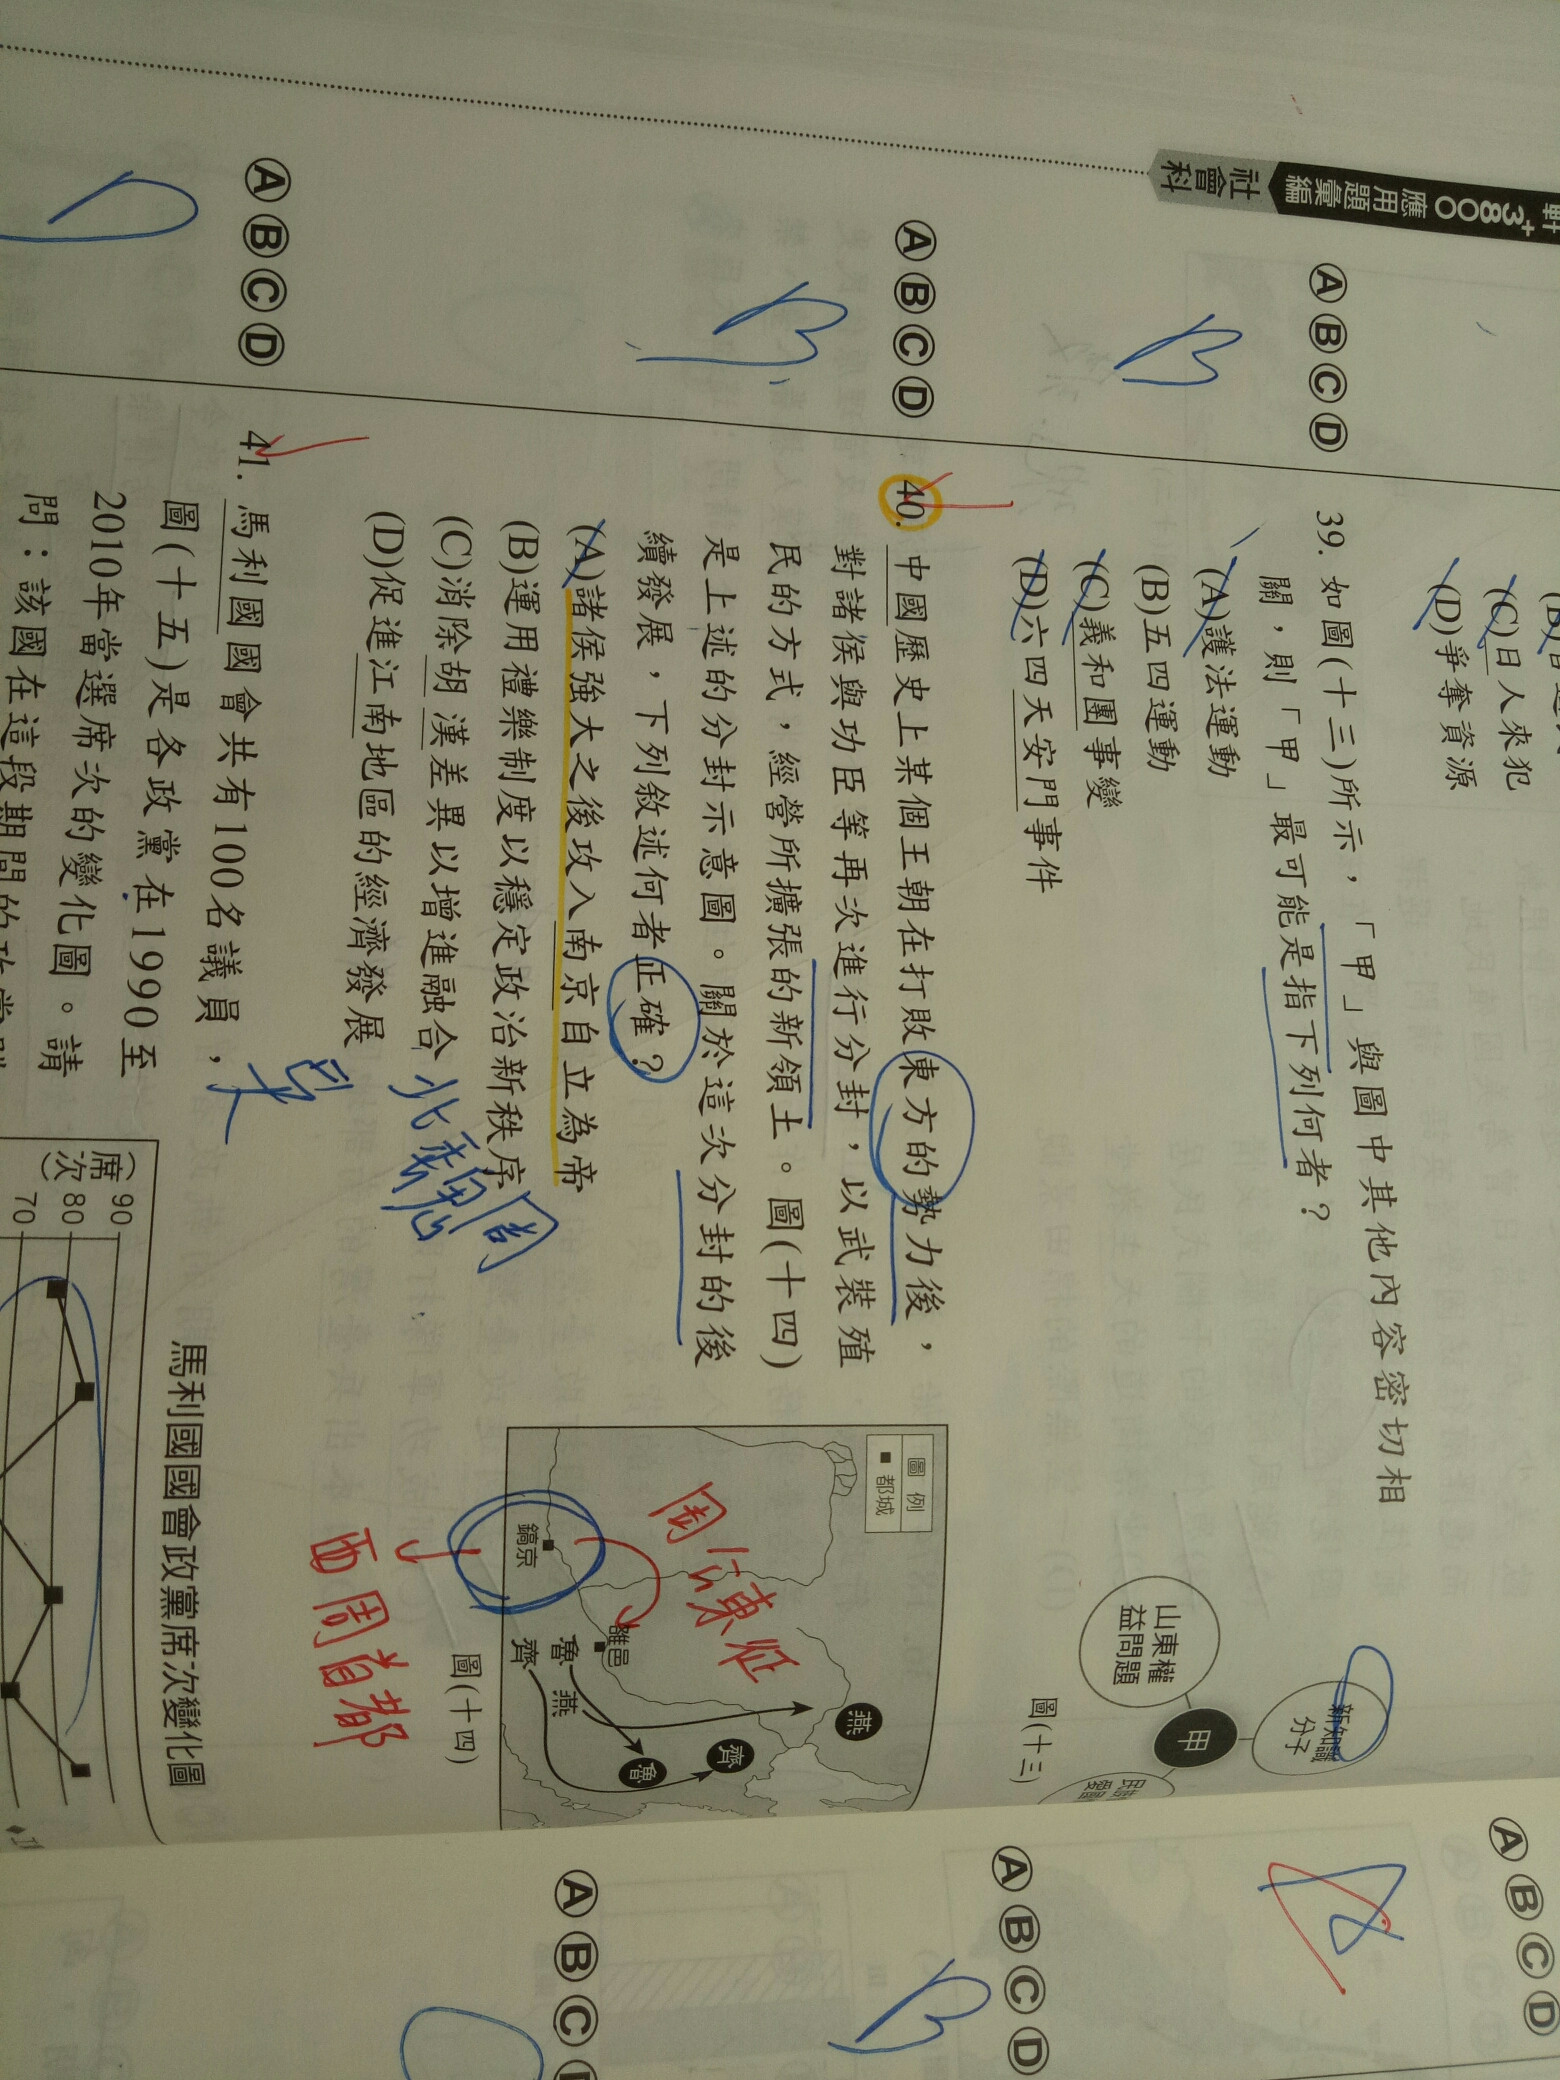 應用題彙編
社會科
(C)日人來犯
(D)爭奪資源
ⒶⒷⒸⒹ
B
39. 如圖(十三)所示，「甲」與圖中其他內容密切相
關，則「甲」最可能是指下列何者？
(A)護法運動
(B)五四運動
(C)義和團事變
(D)六四天安門事件
山東權
益問題
甲
新知識
分子
圖(十三)
ⒶⒷⒸⒹ
B
40. 中國歷史上某個王朝在打敗東方的勢力後，
對諸侯與功臣等再次進行分封，以武裝殖
民的方式，經營所擴張的新領土。圖(十四)
是上述的分封示意圖。關於這次分封的後
續發展，下列敘述何者正確？
(A)諸侯強大之後攻入南京自立為帝
(B)運用禮樂制度以穩定政治新秩序
周
(C)消除胡漢差異以增進融合
北魏
(D)促進江南地區的經濟發展
吳
圖例
■都城
周公東征
鎬京
雒邑
魯
齊
燕
燕
齊
魯
西周首都
圖(十四)
ⒶⒷⒸⒹ
41. 馬利國國會共有100名議員，
圖(十五)是各政黨在1990至
2010年當選席次的變化圖。請
問：該國在這段期間的政黨
馬利國國會政黨席次變化圖
(席次)
90
80
70
ⒶⒷⒸⒹ
ⒶⒷⒸⒹ
B
ⒶⒷⒸ